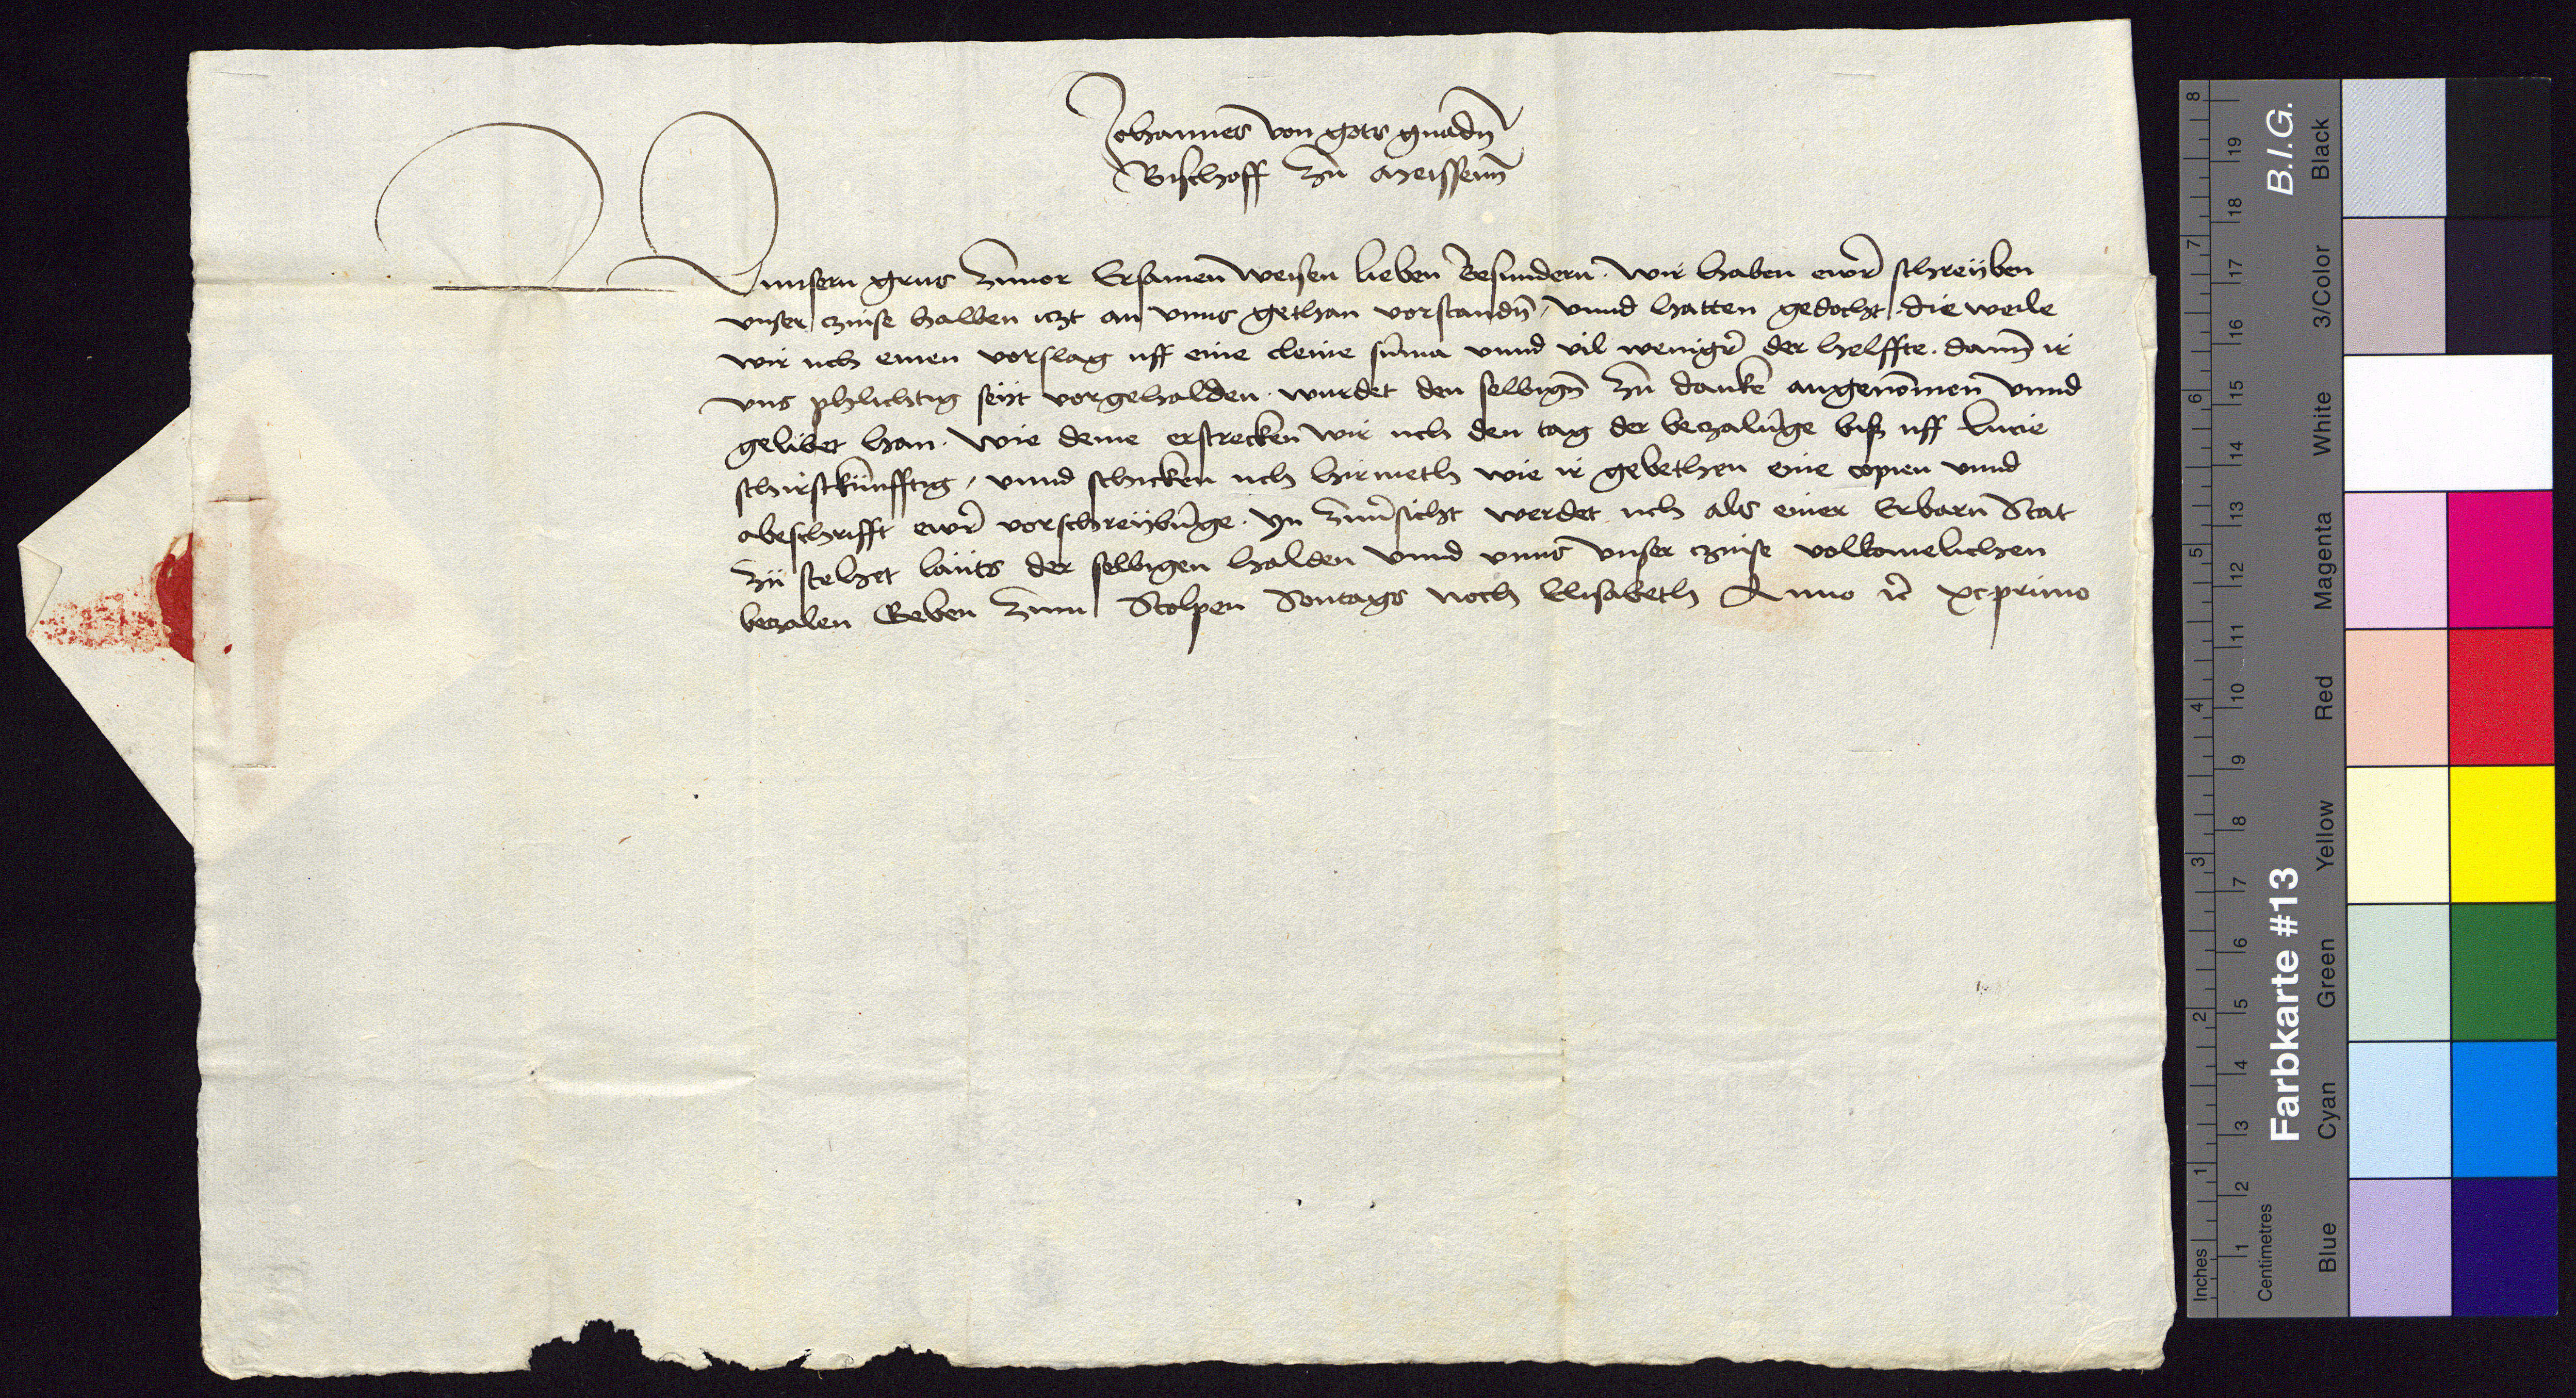 Johannes von gots gnadn̄
Bischoff zu meissenn̄
Vnnsern grus zuuor Ersamen weisen lieben besundern. wir haben ewr̄ schreyben
vnser czinse halben iczt an vnns gethan vorstandn̄, vnnd hatten gedocht. die weile
wir uch einen vorslag uff eine cleine sūma vnnd vil wenigr̄ der helffte. dann̄ ir
vns phlichtig seyt vorgehalden. wurdet den selbign̄ zu danke angenōmen vnnd
gelibet han. wie deme erstrecken wir uch den tag der beczalūge biß uff Lucie
schirstkunfftig, vnnd schicken uch hirmeth wie ir gebethen eine copien vnnd
abeschrifft ewr̄ vorschreybūge. yn zuuorsicht werdet uch als einer Erbarn Stat
zu stehet lauts der selbigen halden vnnd vnns vnser czinse volkomelichen
beczalen Geben zcum Stolpen Sontags noch Elisabeth Anno rc̄ xc primo
8 7 6 5 4 3 2 1 Inches
19 18 17 16 15 14 13 12 11 10 9 8 7 6 5 4 3 2 1 Centimetres
Farbkarte #13 B.I.G.
Blue Cyan Green Yellow Red Magenta White 3/Color Black